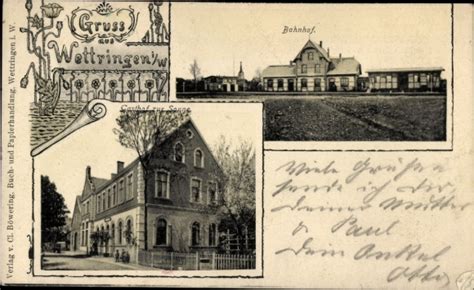 Gruss
aus
Wettringen i/W
Bahnhof.
Gasthof zur Sonne
Verlag v. Cl. Böwering, Buch- und Papierhandlung, Wettringen i. W.
Viele Grüße
sende ich dir
deine Mutter
u Paul
Dein Onkel
Otto